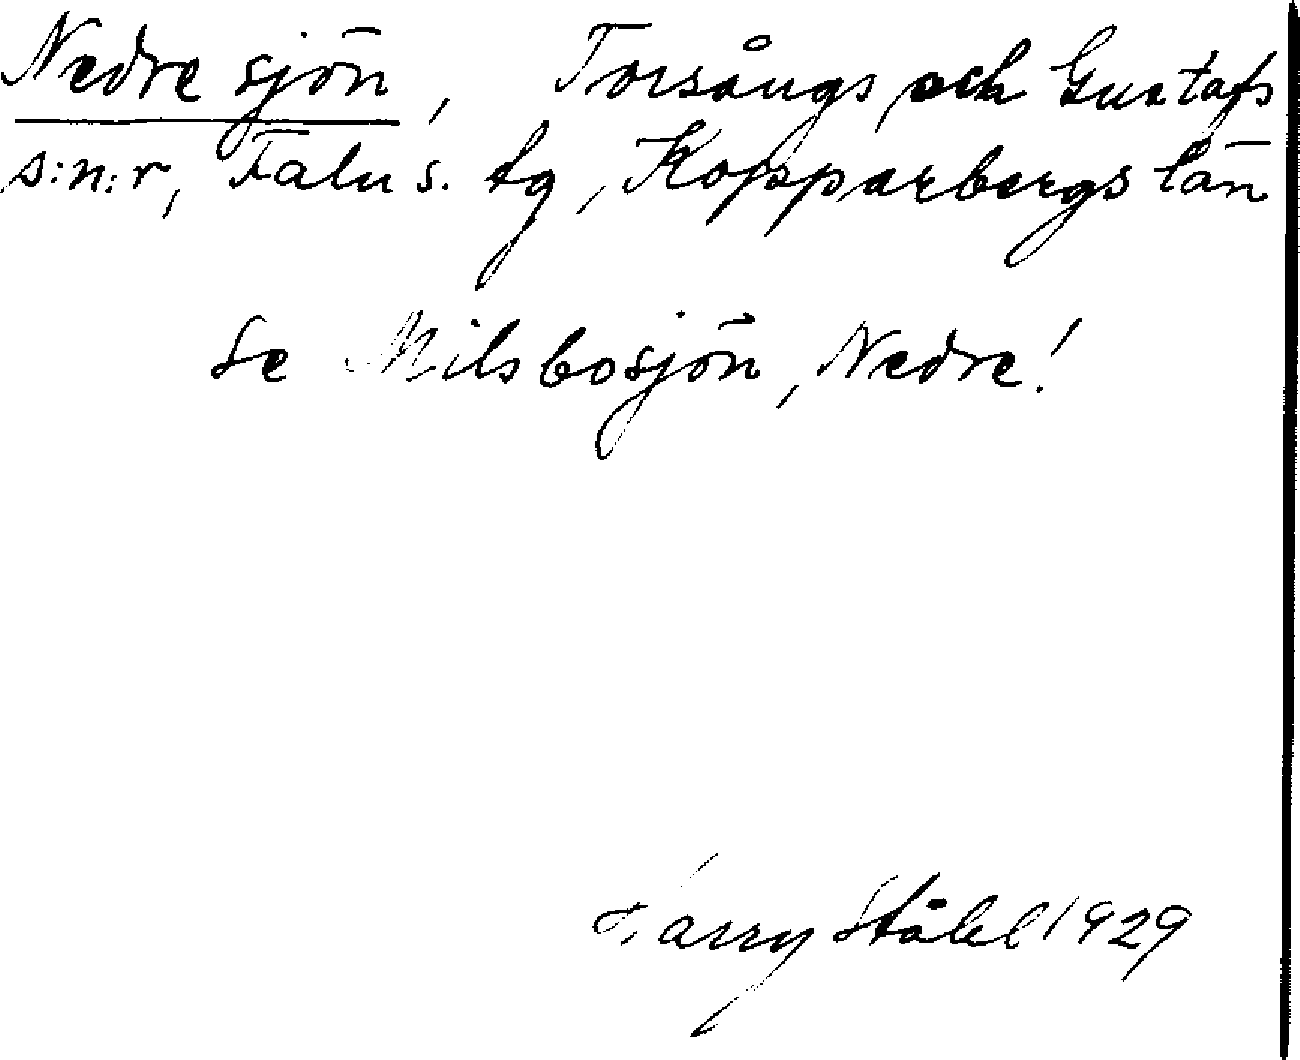 Nedre sjön, Torsångs och Gustafs
s:n:r, Falu s. tg, Kopparbergs län
Se Milsbosjön, Nedre!
Harry Ståhl 1929